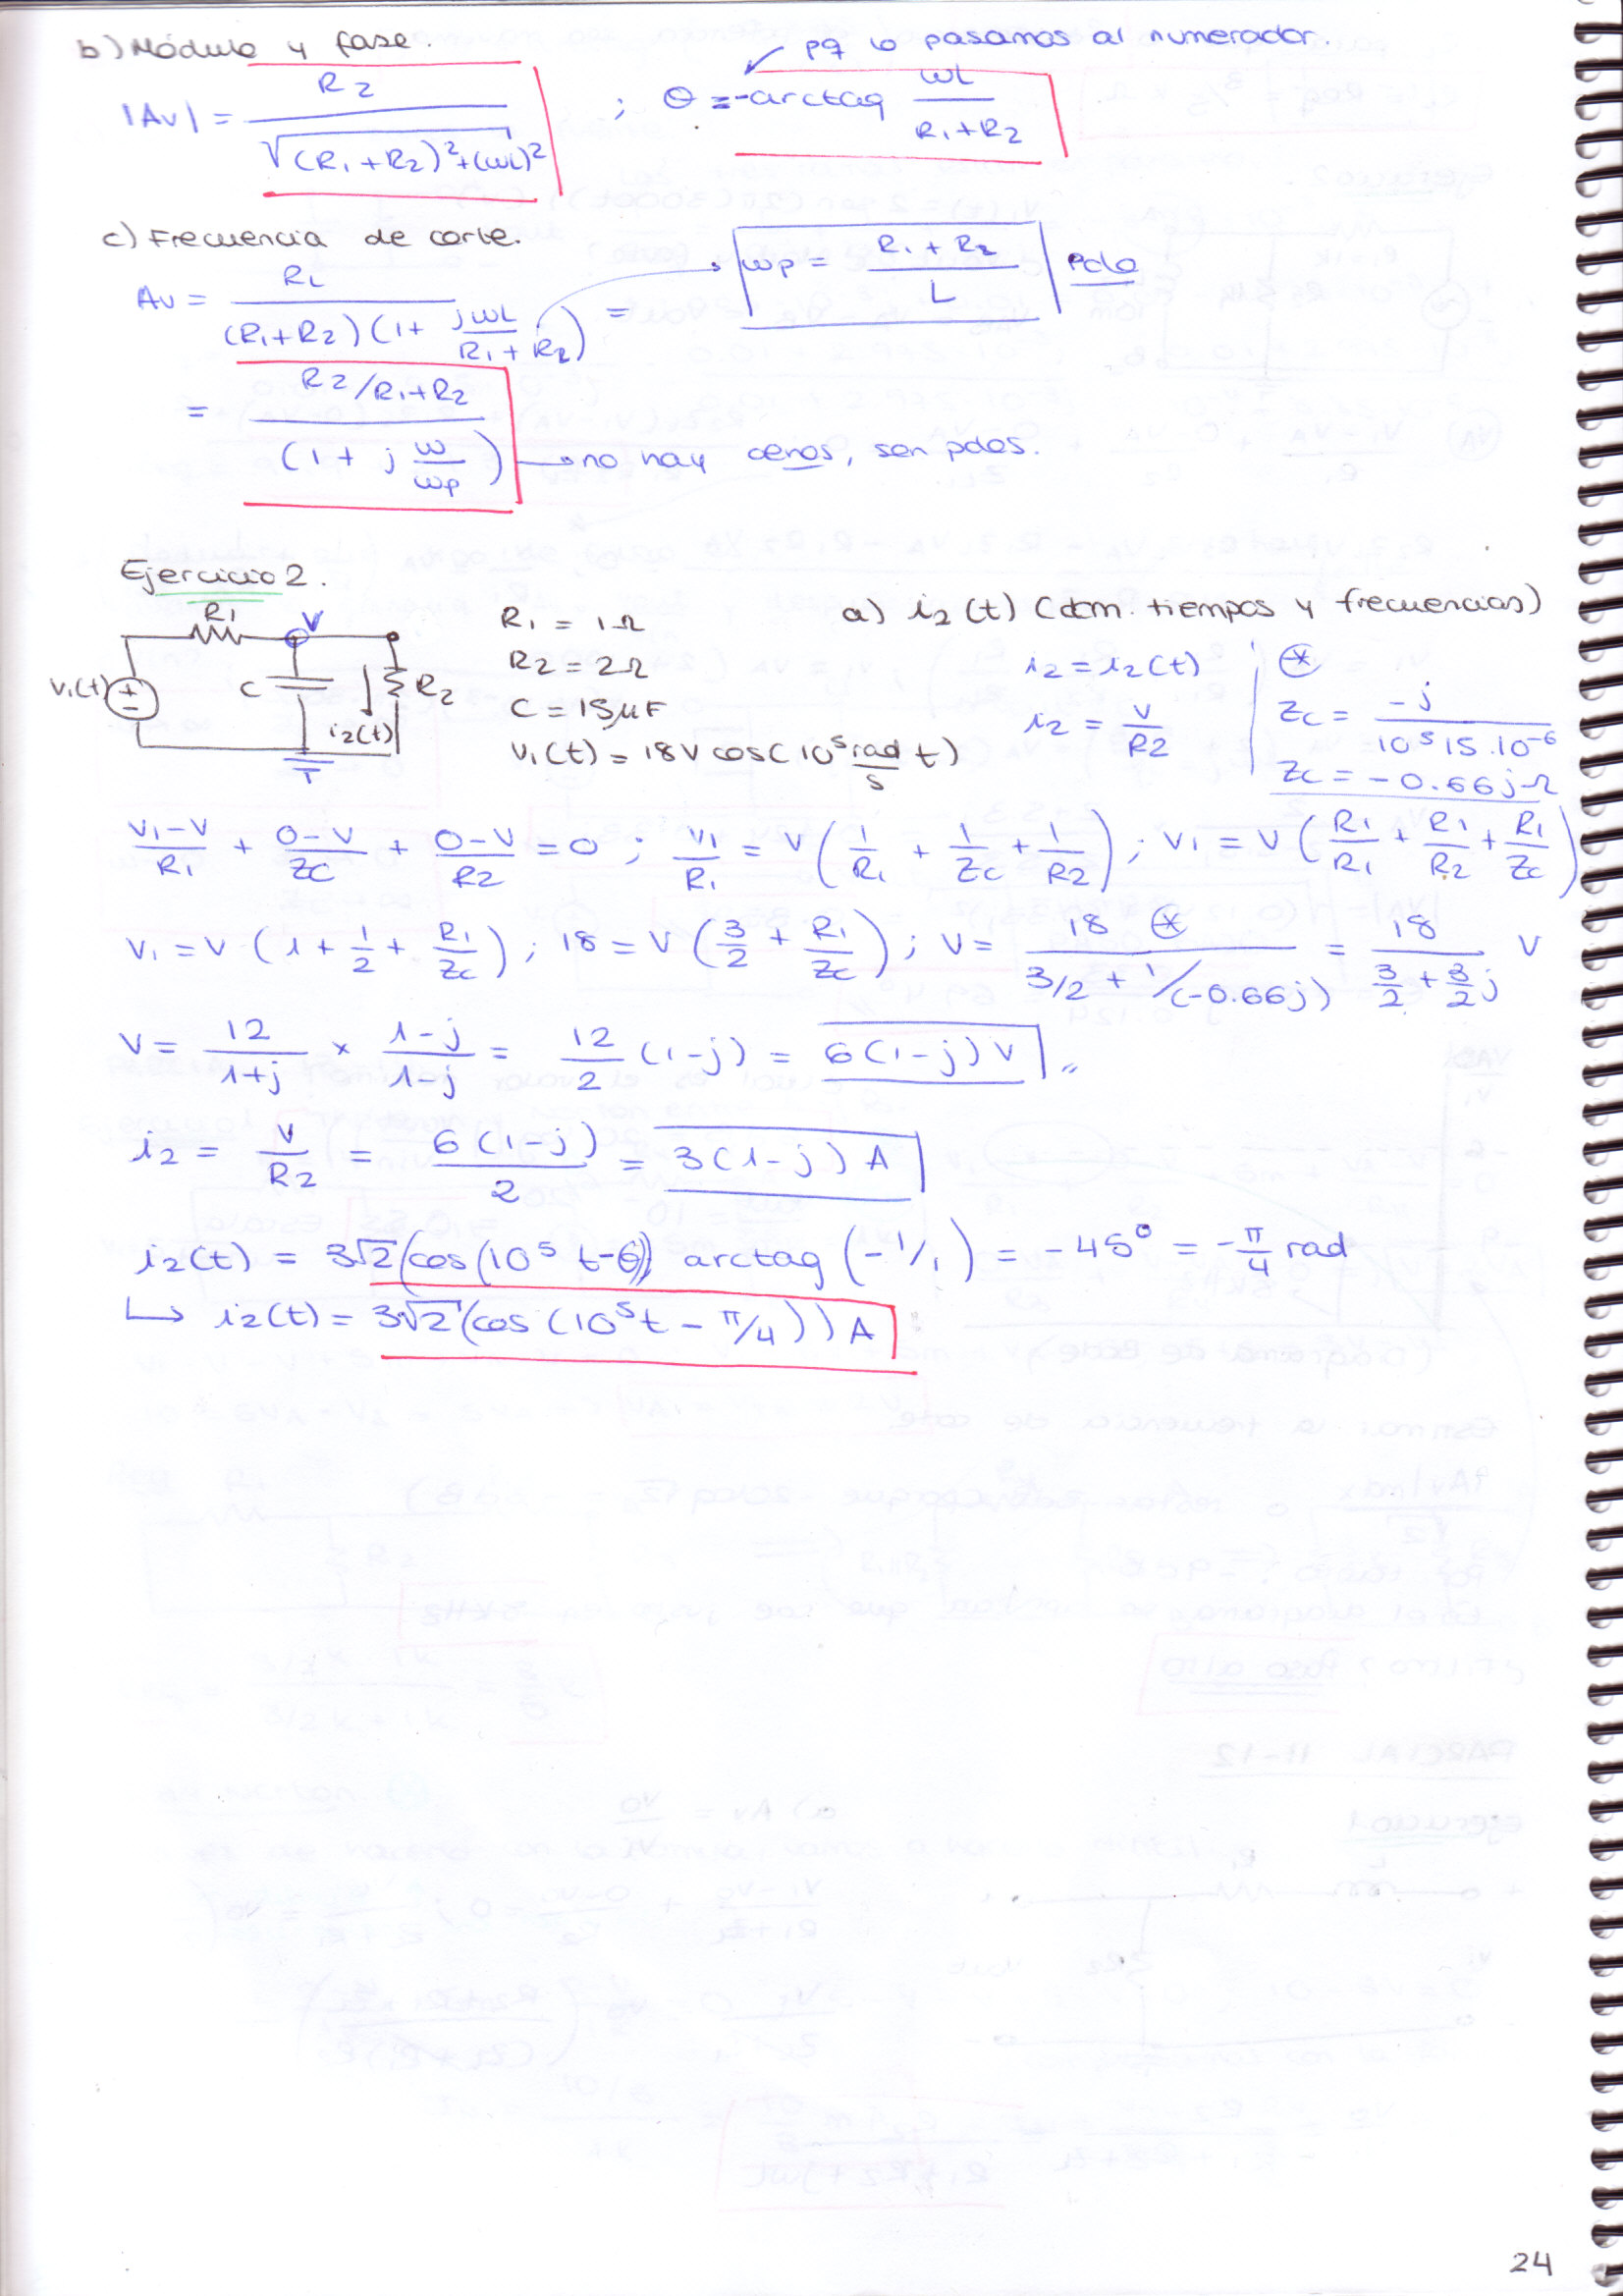 b) Módulo y fase.
pq lo pasamos al numerador.
|Av| = R2 / √((R1+R2)²+(ωL)²) ; θ = -arctag ωL / R1+R2
c) Frecuencia de corte.
Av = RL / (R1+R2)(1+ jωL / R1+R2) = ωp = R1+R2 / L Polo
= R2/R1+R2 / (1 + j ω/ωp) → no hay ceros, son polos.
Ejercicio 2.
R1
V
v1(t)
+
-
C
R2
i2(t)
R1 = 1Ω
R2 = 2Ω
C = 15μF
v1(t) = 18V cos(10⁵ rad/s t)
a) i2(t) (dom. tiempos y frecuencias)
i2 = i2(t)
i2 = V/R2
⊛
Zc = -j / 10⁵ 15.10⁻⁶
Zc = -0.66jΩ
V1-V / R1 + 0-V / Zc + 0-V / R2 = 0 ; V1/R1 = V (1/R1 + 1/Zc + 1/R2) ; V1 = V (R1/R1 + R1/R2 + R1/Zc)
V1 = V (1 + 1/2 + R1/Zc) ; 18 = V (3/2 + R1/Zc) ; V = 18 ⊛ / 3/2 + 1/(-0.66j) = 18 / 3/2 + 3/2 j V
V = 12 / 1+j × 1-j / 1-j = 12/2 (1-j) = 6(1-j) V //
i2 = V/R2 = 6(1-j) / 2 = 3(1-j) A
i2(t) = 3√2 (cos(10⁵ t-θ)) arctag (-1/1) = -45° = -π/4 rad
↳ i2(t) = 3√2 (cos(10⁵t - π/4)) A
24